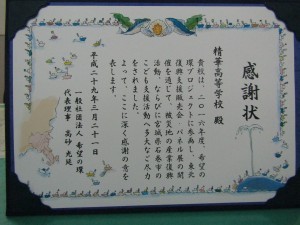 感謝状
精華高等学校 殿
貴校は、二〇一六年度、希望の
環プロジェクトに参画し、東北
復興支援販売会・パネル展の開
催を通じて、被災地の産業復興
活動、ならびに宮城県石巻市の
こども支援活動へ多大なご尽力
をされました。
よって、ここに深く感謝の意を
表します。
平成二十九年三月二十一日
一般社団法人 希望の環
代表理事 高砂 光延